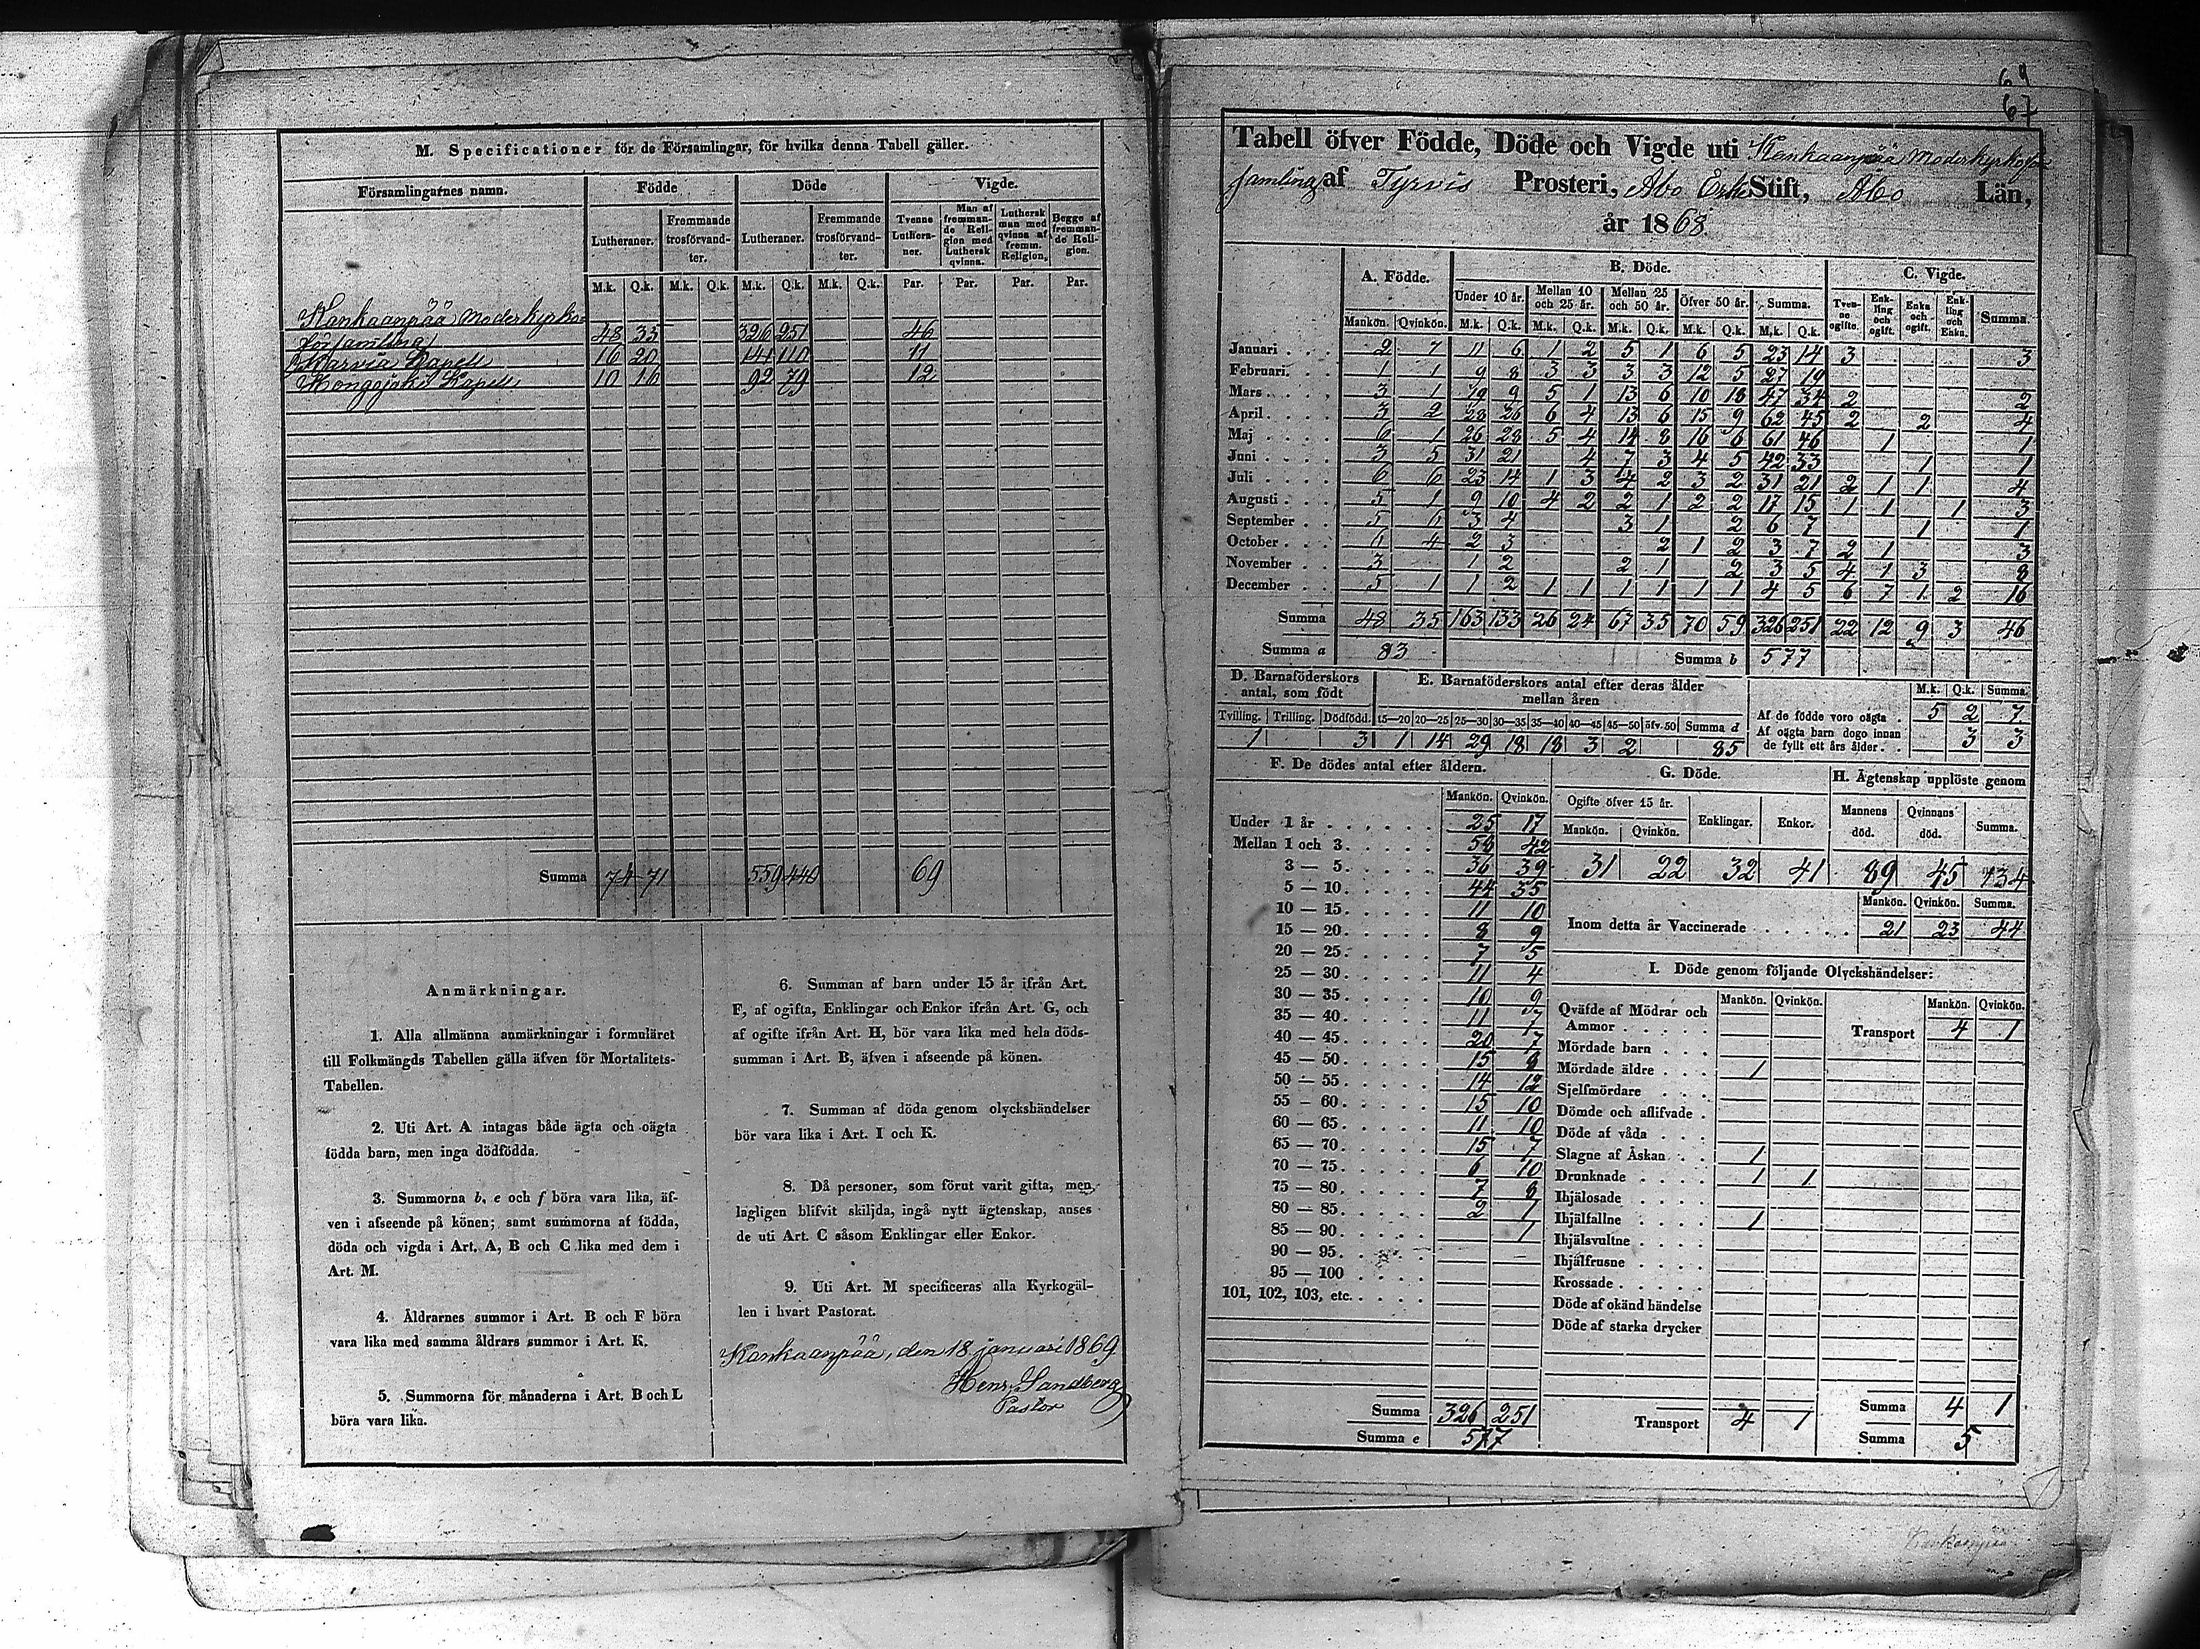 M. Specificationer för de Församlingar, för hvilka denna Tabell gäller.
Församlingarnes namn. Födde Döde Vigde.
Lutheraner. Fremmande trosförvandter. Lutheraner. Fremmande trosförvandter. Tvenne Lutheraner. Man af fremmande Religion med Luthersk qvinna. Luthersk man med qvinna af fremm. Religion. Begge af fremmande Religion.
M.k. Q.k. M.k. Q.k. M.k. Q.k. M.k. Q.k. Par. Par. Par. Par.
Kankaanpää Moderkyrko-
församling 48 35 326 251 46
Karvia Kapell 16 20 141 110 11
Honggojoki Kapell 10 16 92 79 12
Summa 74 71 559 440 69
Anmärkningar.
1. Alla allmänna anmärkningar i formuläret
till Folkmängds Tabellen gälla äfven för Mortalitets-
Tabellen.
2. Uti Art. A intagas både ägta och oägta
födda barn, men inga dödfödda.
3. Summorna b, e och f böra vara lika, äf-
ven i afseende på könen; samt summorna af födda,
döda och vigda i Art. A, B och C lika med dem i
Art. M.
4. Åldrarnes summor i Art. B och F böra
vara lika med samma åldrars summor i Art. K.
5. Summorna för månaderna i Art. B och L
böra vara lika.
6. Summan af barn under 15 år ifrån Art.
F, af ogifta, Enklingar och Enkor ifrån Art. G, och
af ogifte ifrån Art. H, bör vara lika med hela döds-
summan i Art. B, äfven i afseende på könen.
7. Summan af döda genom olyckshändelser
bör vara lika i Art. I och K.
8. Då personer, som förut varit gifta, men
lagligen blifvit skiljda, ingå nytt ägtenskap, anses
de uti Art. C såsom Enklingar eller Enkor.
9. Uti Art. M specificeras alla Kyrkogäl-
len i hvart Pastorat.
Kankaanpää, den 18 januari 1869
Henr. Sandberg
Pastor
69
67
Tabell öfver Födde, Döde och Vigde uti Kankaanpää Moderkyrkoför
samling af Tyrvis Prosteri, Åbo Erke Stift, Åbo Län,
år 1868.
A. Födde. B. Döde. C. Vigde.
Under 10 år. Mellan 10 och 25 år. Mellan 25 och 50 år. Öfver 50 år. Summa. Tvenne ogifte. Enkling och ogift. Enka och ogift. Enkling och Enka. Summa.
Mankön. Qvinkön. M.k. Q.k. M.k. Q.k. M.k. Q.k. M.k. Q.k. M.k. Q.k.
Januari 2 7 11 6 1 2 5 1 6 5 23 14 3 3
Februari 1 1 9 8 3 3 3 3 12 5 27 19
Mars 3 1 19 9 5 1 13 6 10 18 47 34 2 2
April 3 2 28 26 6 4 13 6 15 9 62 45 2 2 4
Maj 6 1 26 28 5 4 14 8 16 6 61 46 1 1
Juni 3 5 31 21 4 7 3 4 5 42 33 1 1
Juli 6 6 23 14 1 3 4 2 3 2 31 21 2 1 1 4
Augusti 5 1 9 10 4 2 2 1 2 2 17 15 1 1 1 3
September 5 6 3 4 3 1 2 6 7 1 1
October 6 4 2 3 2 1 2 3 7 2 1 3
November 3 1 2 2 1 2 3 5 4 1 3 8
December 5 1 1 2 1 1 1 1 1 1 4 5 6 7 1 2 16
Summa 48 35 163 133 26 24 67 35 70 59 326 251 22 12 9 3 46
Summa a 83 Summa b 577
D. Barnaföderskors antal, som födt
E. Barnaföderskors antal efter deras ålder mellan åren
M.k. Q.k. Summa.
Tvilling. Trilling. Dödfödd. 15—20 20—25 25—30 30—35 35—40 40—45 45—50 öfv. 50 Summa d
1 3 1 14 29 18 18 3 2 85
Af de födde voro oägta 5 2 7
Af oägta barn dogo innan de fyllt ett års ålder 3 3
F. De dödes antal efter åldern.
Mankön. Qvinkön.
Under 1 år 25 17
Mellan 1 och 3 58 42
3 — 5 36 39
5 — 10 44 35
10 — 15 11 10
15 — 20 8 9
20 — 25 7 5
25 — 30 11 4
30 — 35 10 9
35 — 40 11 7
40 — 45 20 7
45 — 50 15 8
50 — 55 14 12
55 — 60 15 10
60 — 65 11 10
65 — 70 15 7
70 — 75 6 10
75 — 80 7 8
80 — 85 2 1
85 — 90 1
90 — 95
95 — 100
101, 102, 103, etc.
Summa 326 251
Summa e 577
G. Döde.
Ogifte öfver 15 år. Enklingar. Enkor.
Mankön. Qvinkön.
31 22 32 41
H. Ägtenskap upplöste genom
Mannens död. Qvinnans död. Summa.
89 45 134
Mankön. Qvinkön. Summa.
Inom detta år Vaccinerade 21 23 44
I. Döde genom följande Olyckshändelser:
Mankön. Qvinkön. Mankön. Qvinkön.
Qväfde af Mödrar och Ammor
Transport 4 1
Mördade barn
Mördade äldre 1
Sjelfmördare
Dömde och aflifvade
Döde af våda
Slagne af Åskan 1
Drunknade 1 1
Ihjälosade
Ihjälfallne 1
Ihjälsvultne
Ihjälfrusne
Krossade
Döde af okänd händelse
Döde af starka drycker
Transport 4 1
Summa 4 1
Summa 5
Kankaanpää